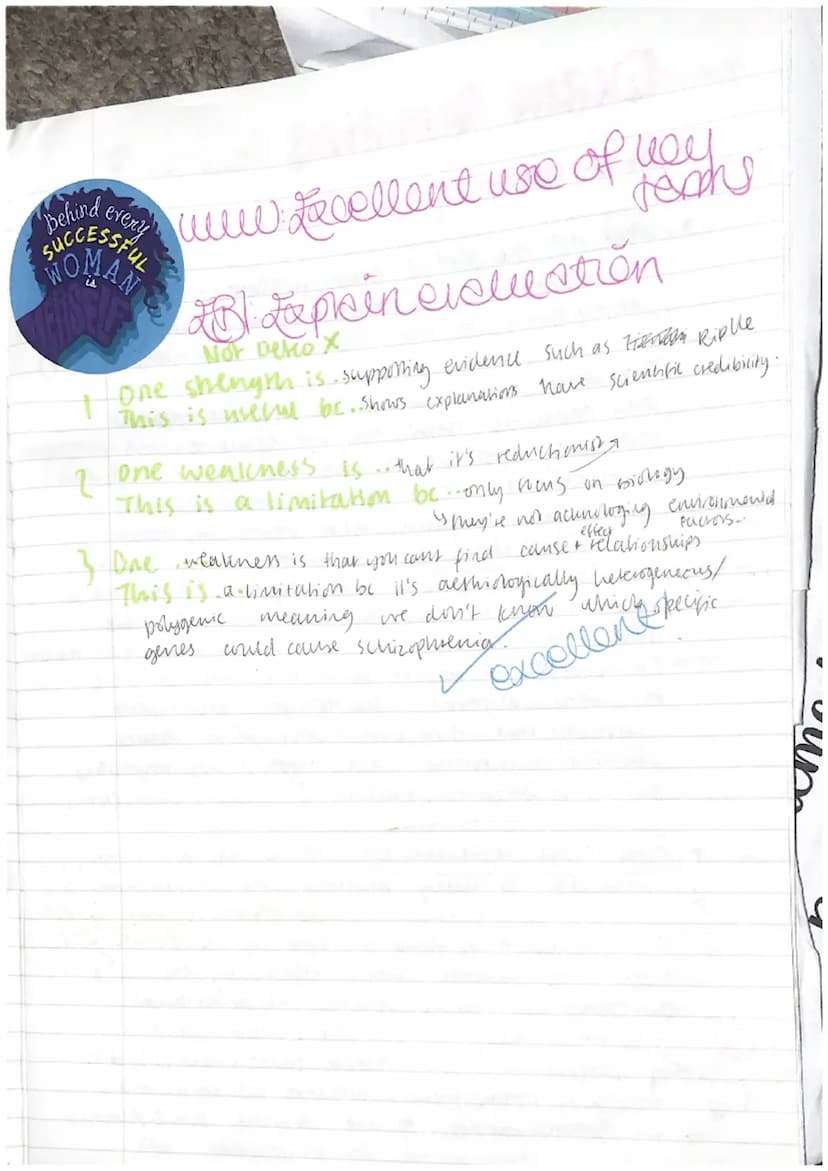 Behind every
SUCCESSFUL
WOMAN
is
HERSELF
www: Excellent use of key
terms
EBI: Explain evaluation
Not Detco X
1 One strength is.. supporting evidence such as Riplle
This is useful bc.. shows explanations have scientific credibility.
2 One weakness is ..that it's reductionist
This is a limitation bc ...only focus on biology
↳ they're not acknologing environmental
factors..
3 One weakness is that you cant find cause + effect relationships
This is a limitation bc it's aethiologically heterogeneous/
polygenic meaning we don't know which specific
genes could cause schizophrenia.
✓ excellent!